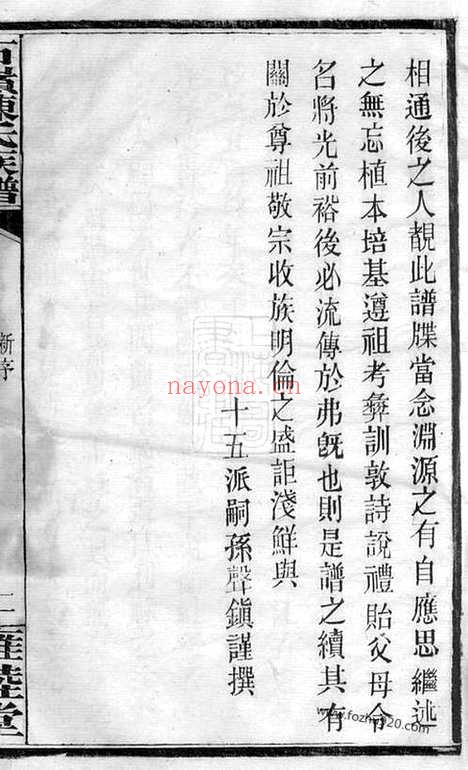 相通後之人覩此譜牒當念淵源之有自應思繼述
之無忘植本培基遵祖考彝訓敦詩說禮貽父母令
名將光前裕後必流傳於弗旣也則是譜之續其有
關於尊祖敬宗收族明倫之盛詎淺鮮與
十五派嗣孫聲鎭謹撰
陳氏族譜
新序
二
雍睦堂
nayona.cn
www.fozhu920.com